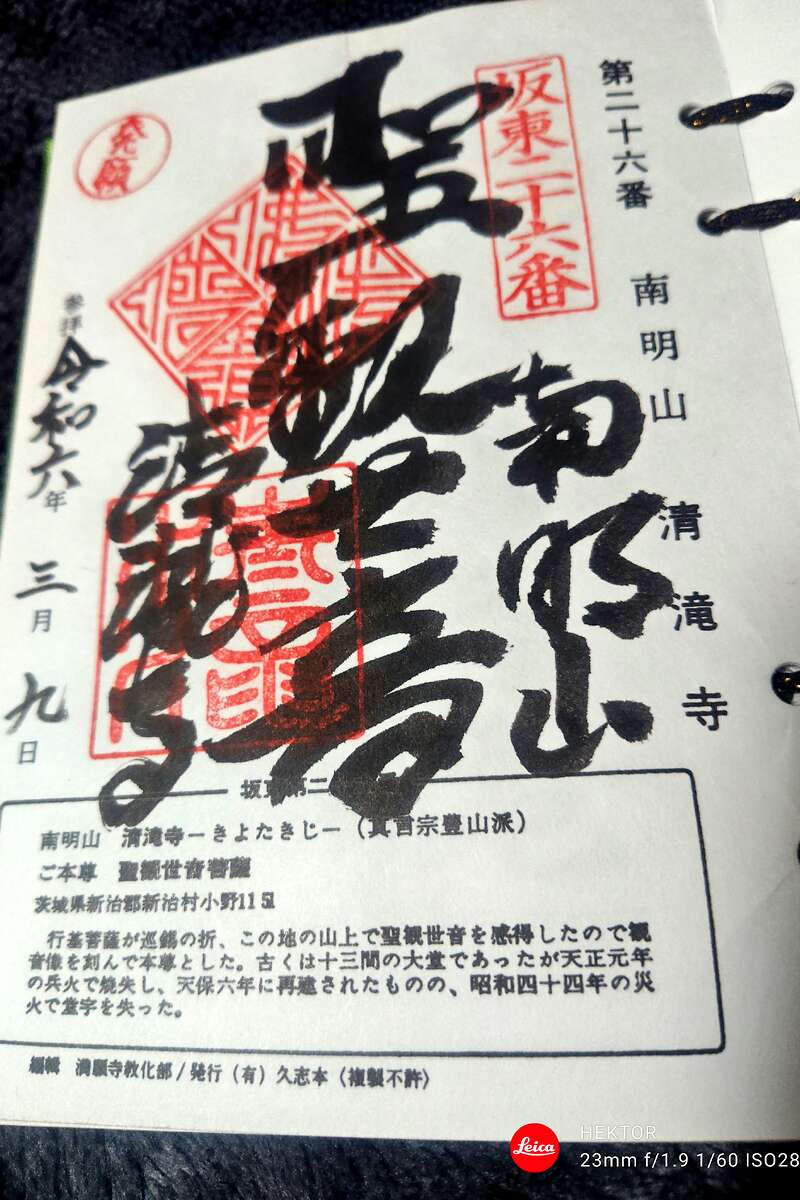 第二十六番 南明山 清滝寺
坂東二十六番
南明山
聖観世音
清滝寺
参拝 令和六年 三月 九日
坂東第二
南明山 清滝寺ーきよたきじー（真言宗豊山派）
ご本尊 聖観世音菩薩
茨城県新治郡新治村小野1151
行基菩薩が巡錫の折、この地の山上で聖観世音を感得したので観
音像を刻んで本尊とした。古くは十三間の大堂であったが天正元年
の兵火で焼失し、天保六年に再建されたものの、昭和四十四年の災
火で堂宇を失った。
編輯 満願寺教化部/発行（有）久志本（複製不許）
Leica
HEKTOR
23mm f/1.9 1/60 ISO28